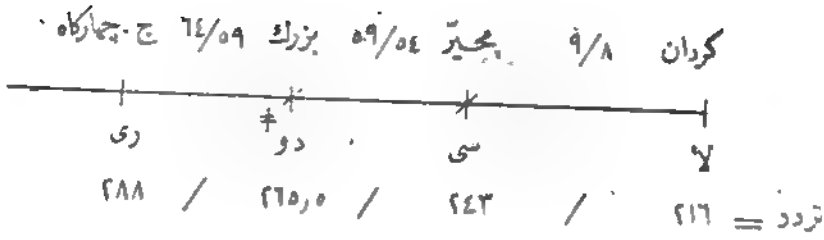 كردان ٩/٨ محيّر ٥٩/٥٤ بزرك ٦٤/٥٩ ج.جهاركاه.
لا سي دو ‡ ري
تردد = ٢١٦ / ٢٤٣ / ٢٦٥,٥ / ٢٨٨